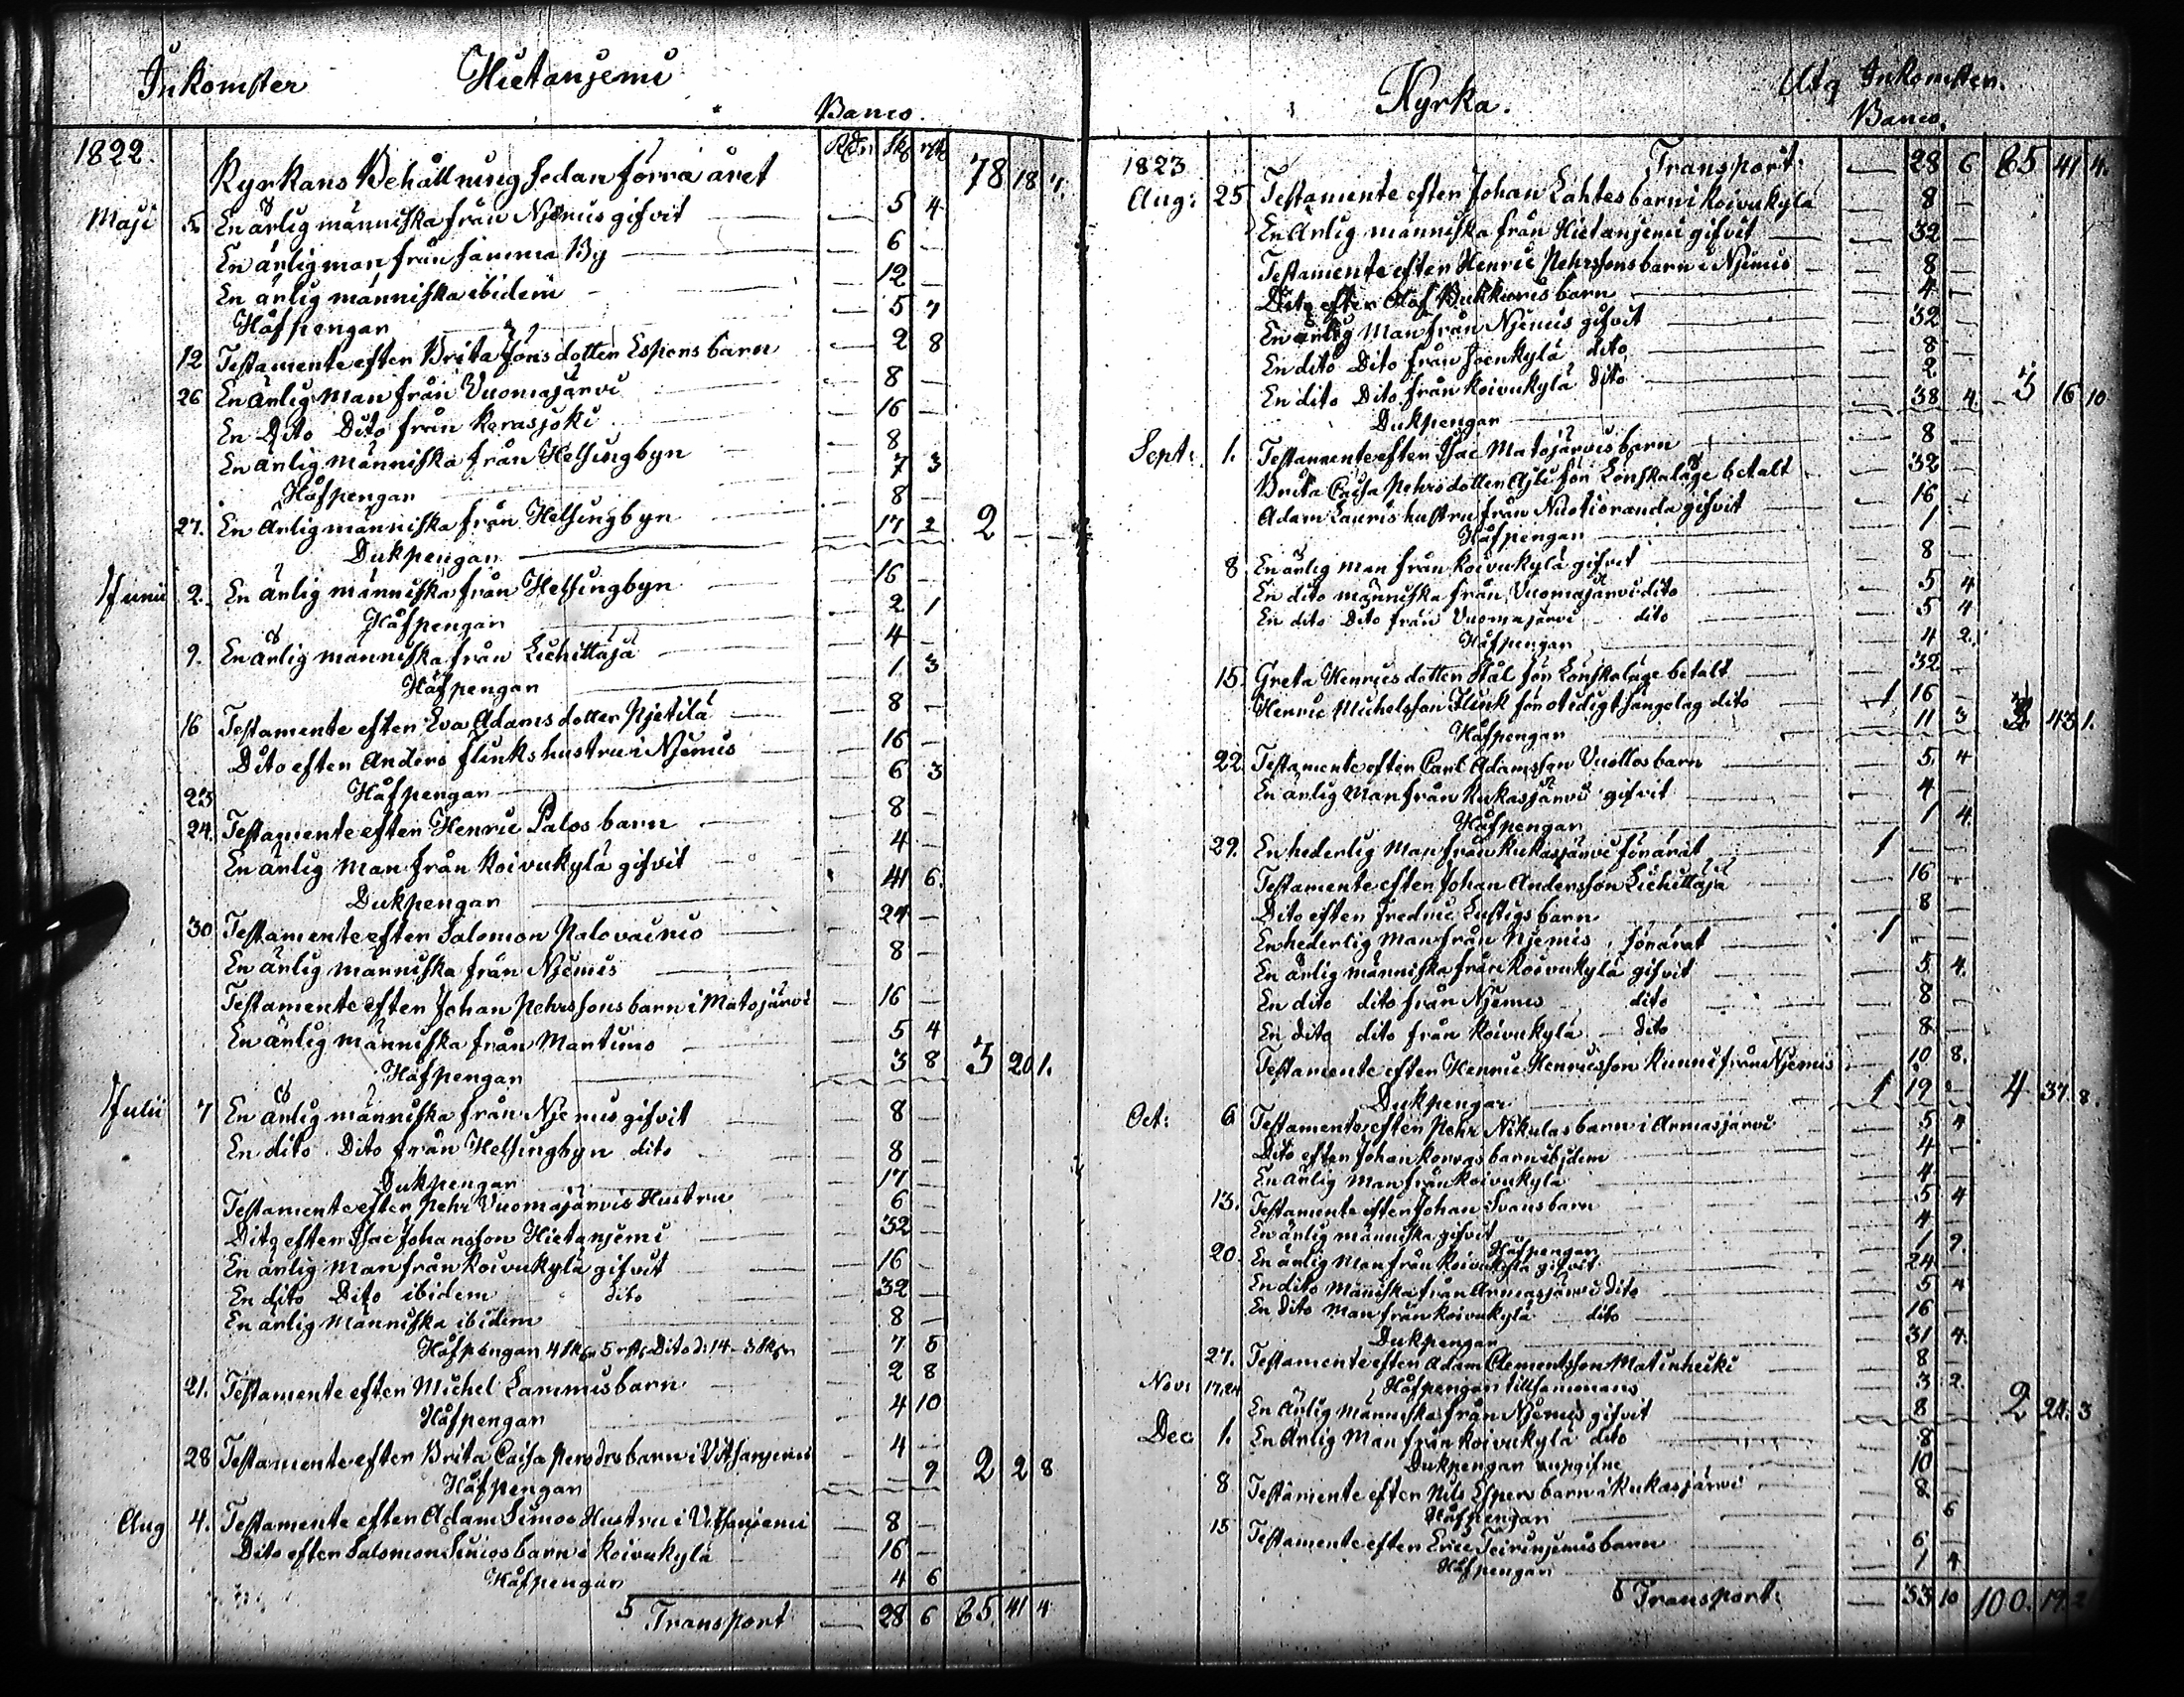 Inkomster Hietaniemi
Banco.
1822. Rdr Sk rst
Kyrkans Behållning sedan förra året 78 18 7.
Maji 5. En ärlig människa från Njemis gifvit — 5 4
En ärlig man från samma By — 6 —
En ärlig människa ibidem — 12 —
Håfpengar — 5 7
12 Testamente efter Brita Jönsdotter Espens barn — 2 8
26 En ärlig Man från Vuomajärvi — 8 —
En Dito Dito från Kerasjoki — 16 —
En ärlig människa från Helsingbyn — 8
Håfpengar 7 3
27. En ärlig människa från Helsingbyn 8 —
Dukpengar 17 2 2 — —
Junii 2. En ärlig människa från Helsingbyn 16 —
Håfpengar — 2 1
9. En ärlig människa från Liehittäjä — 4 —
Håfpengar — 1 3
16 Testamente efter Eva Adamsdotter Pjetilä — 8 —
Dito efter Anders Flinks hustru i Njemis — 16 —
23 Håfpengar — 6 3
24. Testamente efter Henric Palos barn — 8 —
En ärlig Man från Koivukylä gifvit — 4 —
Dukpengar 41 6.
30 Testamente efter Salomon Palovainio 24 —
En ärlig människa från Njemis — 8 —
Testamente efter Johan Pehrssons barn i Matojärvi — 16 —
En ärlig människa från Martimo — 5 4
Håfpengar 3 8 3 20 1.
Julii 7 En ärlig människa från Njemis gifvit 8 —
En dito Dito från Helsingbyn dito 8 —
Dukpengar 17 —
Testamente efter Pehr Vuomajärvis Hustru 6 —
Dito efter Isac Johansson Hietanjemi 32 —
En ärlig Man från Koivukylä gifvit 16 —
En dito Dito ibidem dito 32 —
En ärlig Människa ibidem 8 —
Håfpengar 4 sk 5 rst Dito d: 14 — 3 sk — 7 5
21. Testamente efter Michel Lammis barn 2 8
Håfpengar 4 10
28 Testamente efter Brita Caisa barn i Vitsanjemi — 4 —
Håfpengar — 9 2 2 8
Aug 4. Testamente efter Adam Simos Hustru i Vitsanjemi 8 —
Dito efter Salomon Simos barn i Koivukylä 16 —
Håfpengar 4 6
Transport — 28 6 85 41 4
Kyrka. Inkomster.
Banco.
1823 Transport: — 28 6 85 41 4.
Aug: 25 Testamente efter Johan Lahtes barn i Koivukylä — 8 —
En Ärlig människa från Hietanjemi gifvit — 32 —
Testamente efter Henric Pehrssons barn i Njemis — 8 —
Dito efter Olof barn — 4 —
En ärlig Man från Njemis gifvit — 32 —
En dito Dito från dito — 8 —
En dito Dito från Koivukylä Dito — 2
Dukpengar — 38 4. 3 16 10
Sept: 1. Testamente efter Isac Matojärvis barn — 8 —
Brita Caisa Pehrsdotter för Lönskaläge betalt — 32 —
Adam Lauris hustru från Nuotioranda gifvit — 16 —
Håfpengar 1 —
8 En ärlig Man från Koivukylä gifvit 8 —
En dito människa från Vuomajärvi dito — 5 4
En dito Dito från Vuomajärvi dito — 5 4
Håfpengar — 4 2.
15. Greta Henricsdotter Stål för Lönskaläge betalt — 32 —
Henric Michelsson Flink för otidigt sängelag dito 1 16 —
Håfpengar 11 3 43 1.
22. Testamente efter Carl Adamsson Vuollos barn — 5 4
En ärlig Man från Kukasjärvi gifvit — 4 —
Håfpengar — 1 4.
29. En hederlig Man från Kukasjärvi förärat 1 — —
Testamente efter Johan Andersson Liehittäjä — 16 —
Dito efter Fredric Lustigs barn — 8 —
En hederlig Man från Njemis, förärat 1 — —
En ärlig människa från Koivukylä gifvit — 5 4.
En dito dito från Njemis dito — 8 —
En dito dito från Koivukylä dito — 8 —
Testamente efter Henric Henricsson Kunnis från Njemis — 10 8.
Dukpengar 1 19 — 4 37. 8.
Oct: 6 Testamente efter Pehr Nikulas barn i Armasjärvi — 5 4
Dito efter Johan Korvas barn ibidem — 4 —
En ärlig Man från Koivukylä — 4 —
13. Testamente efter Johan Svans barn — 5 4
En ärlig människa gifvit — 4 —
Håfpengar — 1 9.
20. En ärlig Man från Koivukylä gifvit — 24 —
En dito Människa från Armasjärvi dito — 5 4
En dito Man från Koivukylä dito — 16 —
Dukpengar — 31 4.
27. Testamente efter Adam Clementsson Matinheiki — 8 —
Nov: 17,24 Håfpengar tillsammans — 3 2.
En Ärlig Människa från Njemis gifvit 8 — 2 24. 3
Dec 1. En Ärlig Man från Koivukylä dito — 8 —
Dukpengar — 10 —
8 Testamente efter Nils Espers barn i Kukasjärvi — 8 —
Håfpengar 6
15 Testamente efter Eric Teirinjemis barn — 6 —
Håfpengar — 1 4
Transport: — 33 10 100. 19. 2